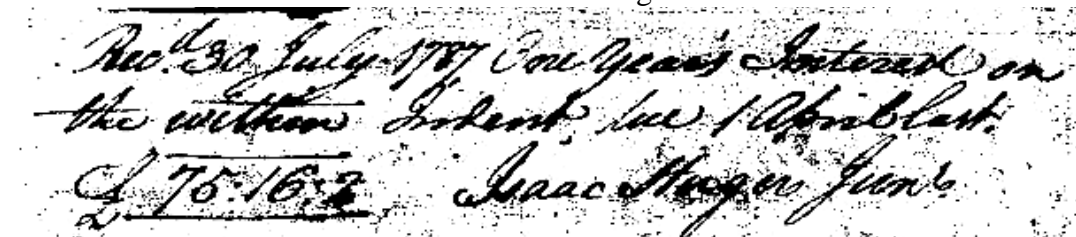 Rec.d 30 July 1787 One Year's Interest on
the within Indent, due 1 April last.
£ 75.16.2 Isaac Huger Junr.